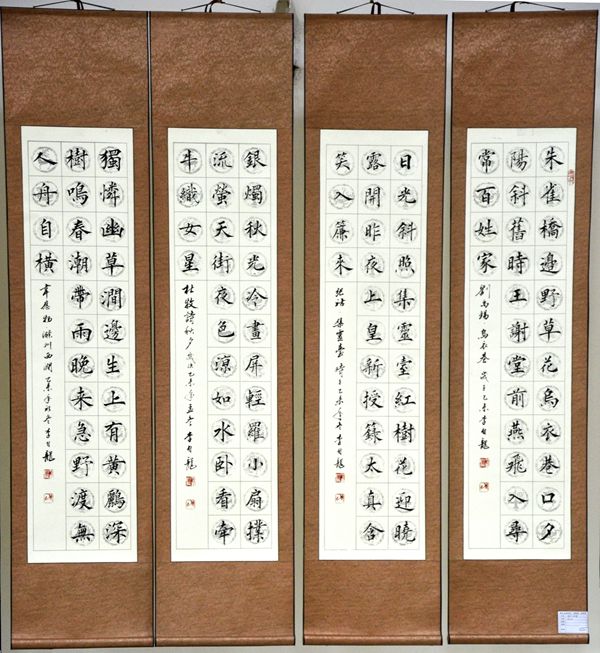 朱雀橋邊野草花烏衣巷口夕
陽斜舊時王謝堂前燕飛入尋
常百姓家
劉禹錫 烏衣巷 歲于乙未
日光斜照集靈臺紅樹花迎曉
露開昨夜上皇新授籙太真含
笑入簾來
張祜 集靈臺 時于乙未年冬
銀燭秋光冷畫屏輕羅小扇撲
流螢天街夜色涼如水卧看牽
牛織女星
杜牧詩秋夕 歲次乙未年孟冬
獨憐幽草澗邊生上有黃鸝深
樹鳴春潮帶雨晚来急野渡無
人舟自橫
韋應物 滁州西澗 乙未年初冬